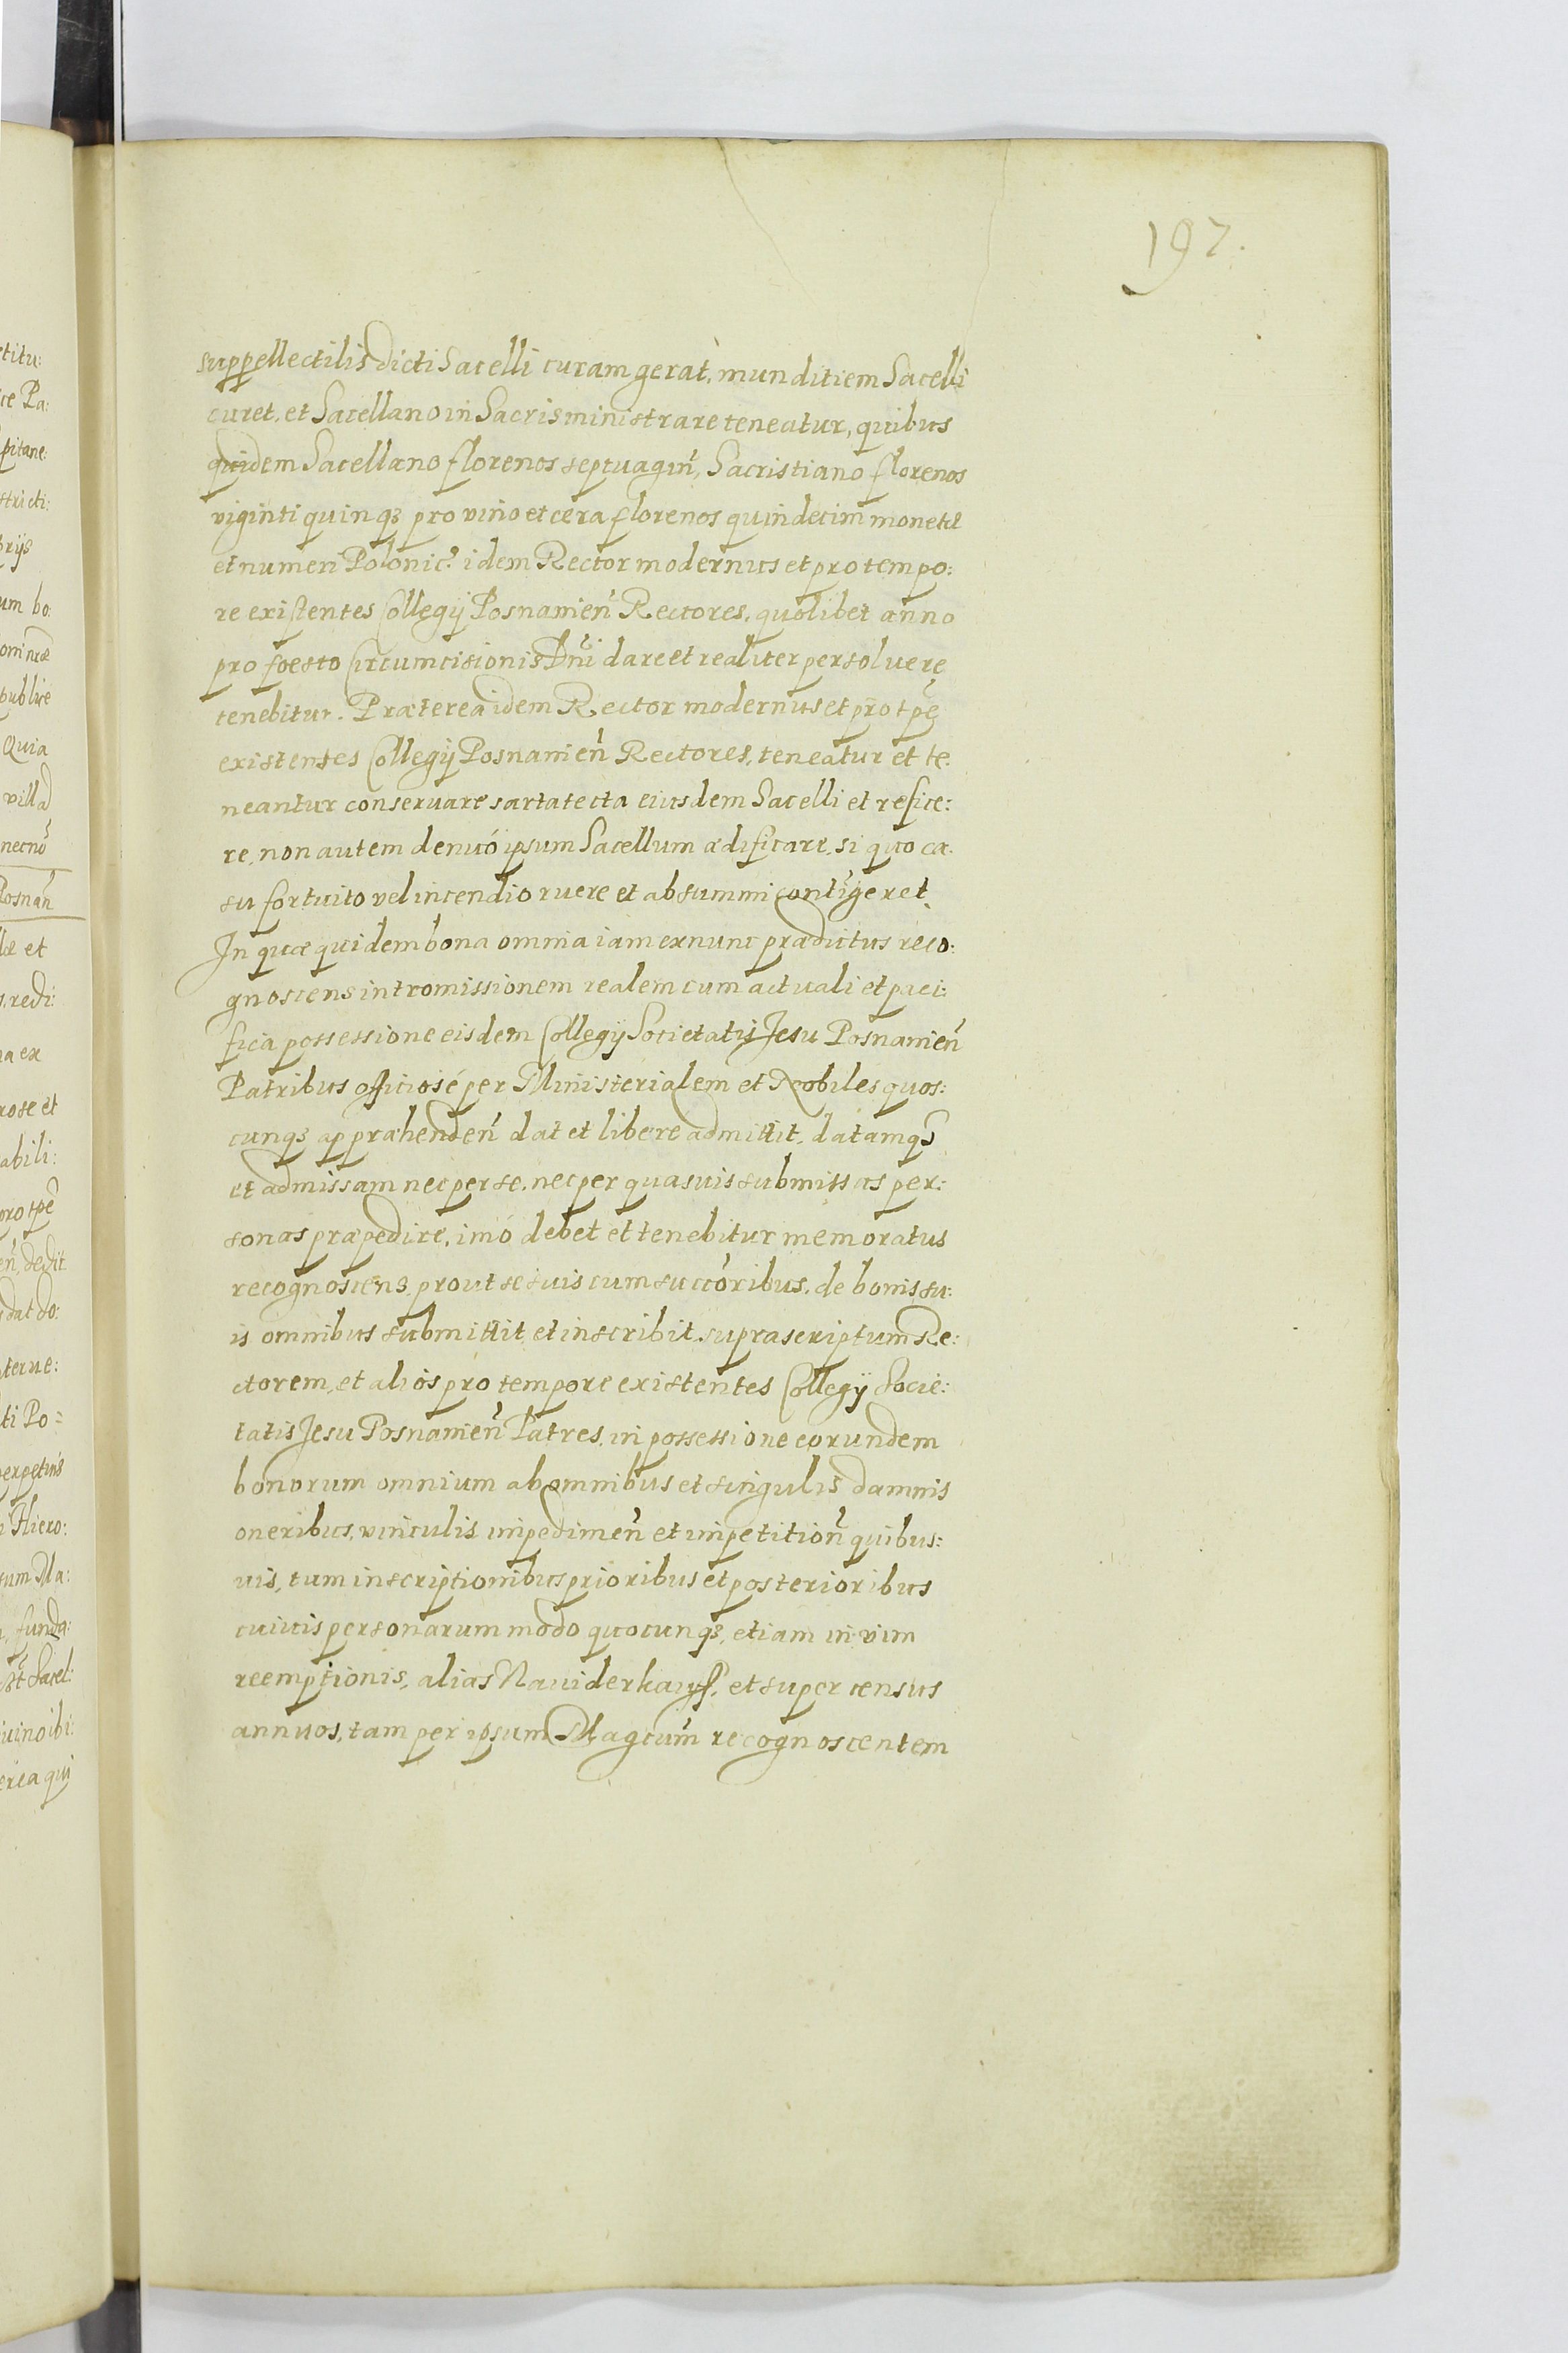 197.
suppellectilis dicti Sacelli curam gerat, munditiem Sacelli
curet, et Sacellano in Sacris ministrare teneatur, quibus
quidem Sacellano florenos septuagin̄, Sacristiano florenos
viginti quinq₃ pro vino et cera florenos quindecim monetæ
et numeri Polonic? idem Rector modernus et pro tempo:
re existentes Collegij Posnanien̄ Rectores, quolibet anno
pro foesto Circumcisionis Dn̄i dare et realiter persoluere
tenebitur. Præterea idem Rector modernus et pro tp̄e
existentes Collegij Posnanien̄ Rectores, teneatur et te:
neantur conseruare sartatecta eiusdem Sacelli et refice:
re, non autem denuó ipsum Sacellum ædificare, si quo ca:
su fortuito vel incendio ruere et absummi contigeret.
In quæ quidem bona omnia iam ex nunc prædictus reco:
gnoscens intromissionem realem cum actuali et paci:
fica possessione eisdem Collegij Societatis Jesu Posnanien̄
Patribus officiosé per Ministerialem et Nobiles quos:
cunq₃ appræhenden̄ dat et libere admittit, datamq₃
et admissam nec per se, nec per quasuis submissas per:
sonas præpedire, imó debet et tenebitur memoratus
recognoscens, prout se suis cum succōribus, de bonis su:
is omnibus submittit et inscribit, suprascriptum Re:
ctorem, et alios pro tempore existentes Collegij Socie:
tatis Jesu Posnanien̄ Patres, in possessione eorundem
bonorum omnium ab omnibus et singulis damnis
oneribus, vinculis impedimen̄ et impetition̄ quibus:
uis, tum inscriptionibus prioribus et posterioribus
cuiuis personarum modo quocunq₃, etiam in vim
reemptionis, alias Na widerkauff, et super census
annuos, tam per ipsum Magcum̄ recognoscentem